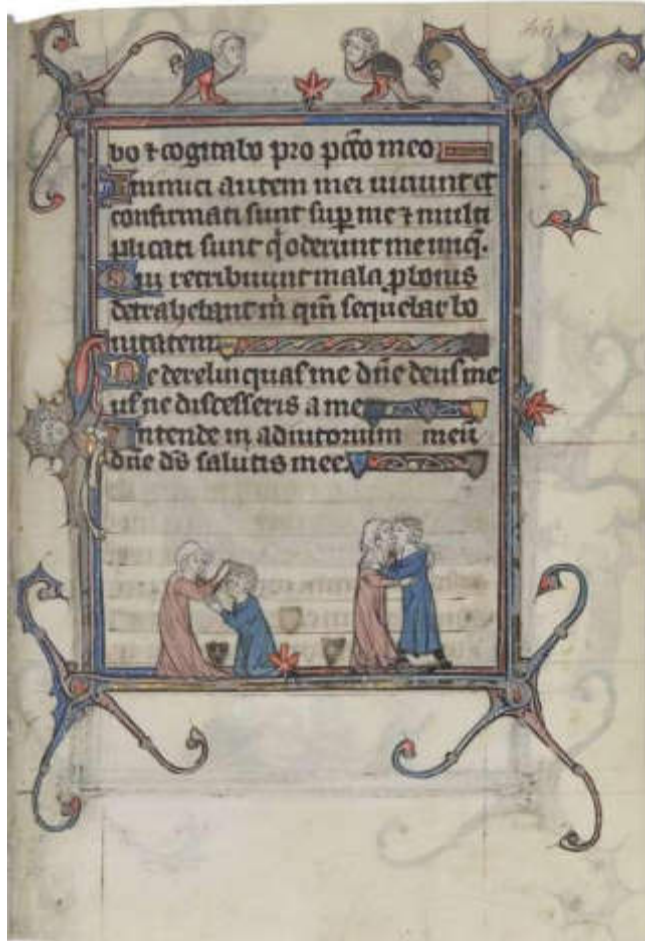 44
bo ⁊ cogitabo pro pcc̄o meo
Inimici autem mei uiuunt et
confirmati sunt suꝑ me ⁊ multi
plicati sunt qͥ oderunt me iniq̄.
Qui retribuunt mala ꝓ bonis
detrahebant m̄ qm̄ sequebar bo
nitatem
Ne derelinquas me dn̄e deus me
us ne discesseris a me
Intende in adiutorium meū
dn̄e ds̄ salutis mee.